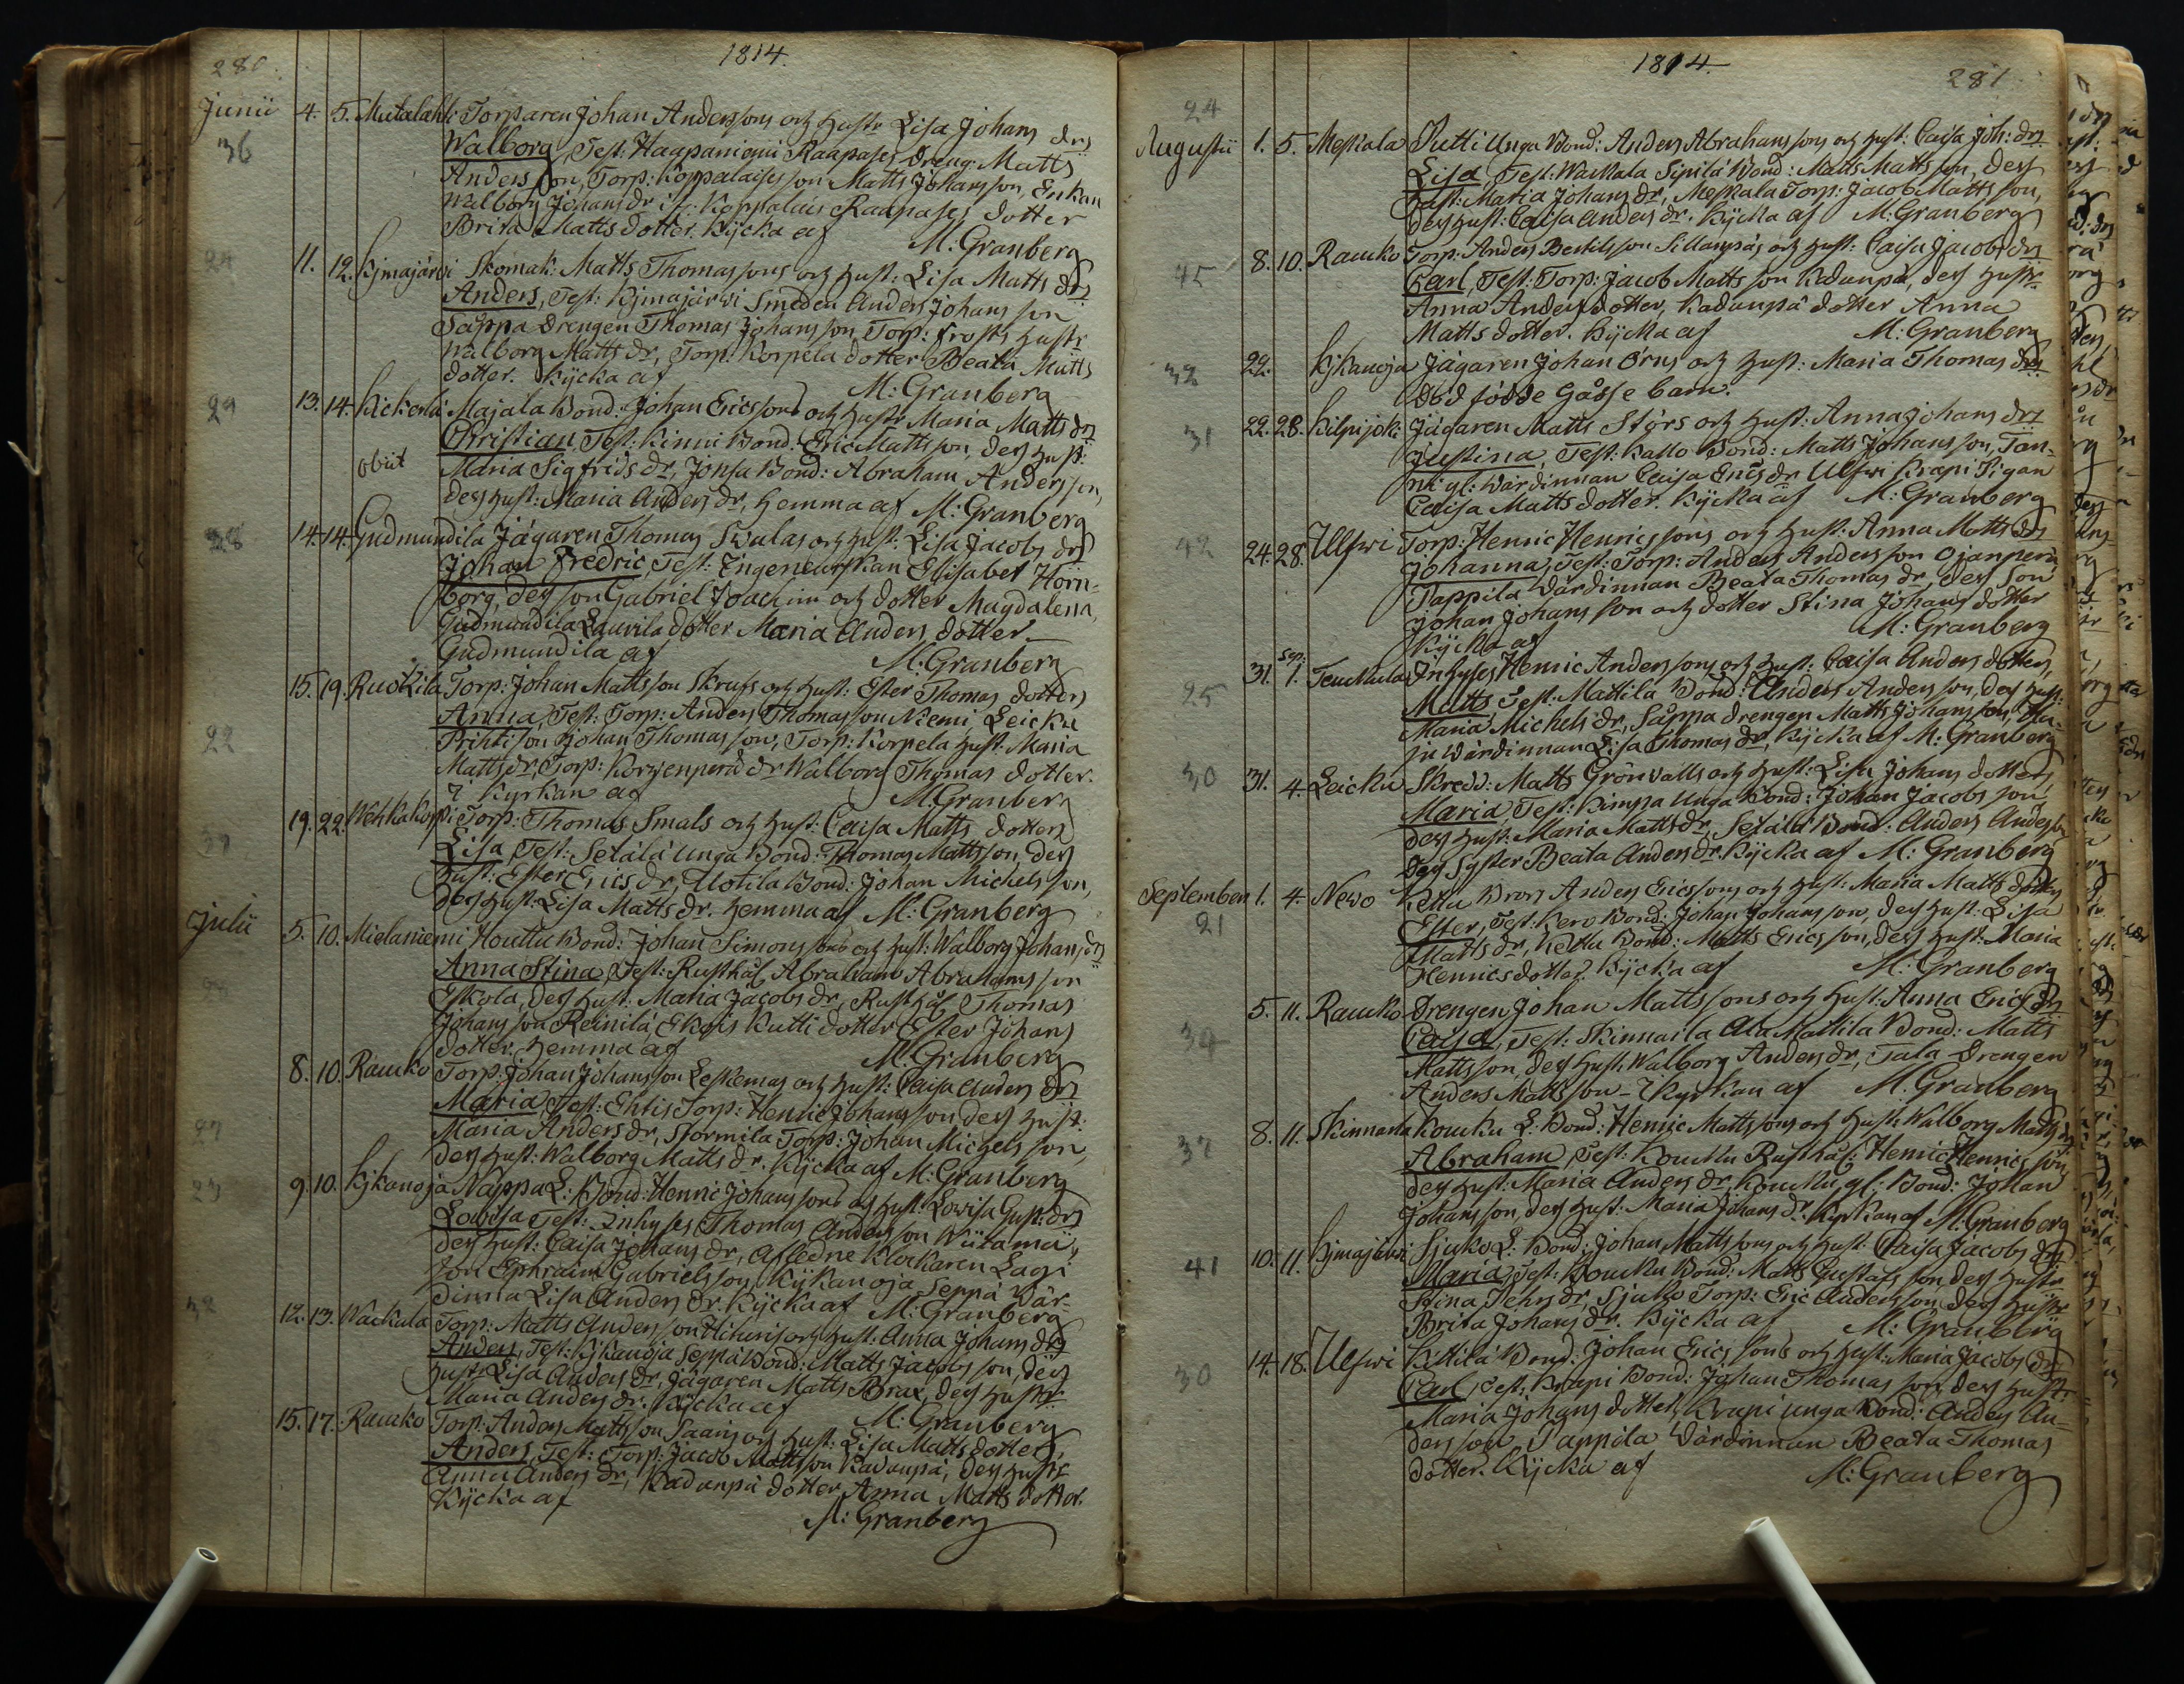 280.
1814.
Junii 4. 5. Mutalahti Torparen Johan Anderssons och Hustr Lisa Johans drs
36 Walborg, Test: Haapaniemi Raapases Dreng: Matts
Andersson, Torp: Koppalaises son Matts Johansson, Enkan
Walborg Johans dr Koppalais Raapases dotter
Brita Matts dotter. Kÿcka af
M: Granberg
24 11. 12. Kjmajärvi Skomak: Matts Thomassons och Hust: Lisa Matts drs
Anders, Test: Kjmajärwi Smeden Anders Johans son
Säppa Drengen Thomas Johansson, Torp: Frosts Hustr
Walborg Matts dr, Torp: Korpela dotter Beata Matts
dotter. Kÿcka af
M: Granberg
29 13. 14. Kickerlä Majala Bond: Johan Ericssons och Hustr Maria Matts drs
Christian, Test: Kinni Bond: Eric Mattsson, dess Hust:
obiit Maria Sigfrids dr, Jonsa Bond: Abraham Andersson,
dess Hust: Maria Anders dr, Hemma af M: Granberg
28 14. 14. Gudmundila Jägaren Thomas Swalas och Hust: Lisa Jacobs drs
Johan Fredric, Test: Engeneurskan Elisabet Hörn-
borg, dess son Gabriel Joachim och dotter Magdalena,
Gudmundila Laurila dotter Maria Anders dotter
Gudmundila af
M: Granberg
15. 19. Ruokila Torp: Johan Mattsson Skrufs och Hust: Ester Thomas dotters
Anna, Test: Torp: Anders Thomasson Niemi, Leicku
22 Prihti son Johan Thomasson, Torp: Korpela Hust: Maria
Matts dr, Torp: Korwenperä dr Walborg Thomas dotter.
I Kyrkan af
M: Granberg
19. 22. Wehkakorpi Torp: Thomas Smals och Hust: Caisa Matts dotters
Lisa, Test: Setälä unga Bond: Thomas Mattsson, dess
Hust: Ester Erics dr, Uotila Bond: Johan Michelsson,
dess Hust: Lisa Matts dr. Hemma af M: Granberg
Julii 5. 10. Mielaniemi Houttu Bond: Johan Simonssons och Hust: Walborg Johans drs
Anna Stina, Test: Rusthål: Abraham Abrahams son
Eskola, dess Hust: Maria Jacobs dr, Rusthål Thomas
Johansson Reinilä, Ekois Kutti dotter Ester Johans
dotter. Hemma af
M: Granberg
8. 10. Raucko Torp: Johan Johansson Leskemas och Hust: Caisa Anders drs
Maria, Test: Ehtis Torp: Henric Johansson dess Hust:
27 Maria Anders dr, Stormila Torp: Johan Michelsson,
dess Hust: Walborg Matts dr. Kÿcka af M: Granberg
23 9. 10. Kjkanoja Näppä L: Bond: Henric Johanssons och Hust: Lowisa Gust: drs
Lowisa Test: Inhyses Thomas Andersson Wiitamä,
dess Hust: Caisa Johans dr, Afledne Klockaren Lagi
son Ephraim Gabrielsson, Kÿkanoja Seppä Wär-
dinna Lisa Anders dr. Kÿcka af M: Granberg
32 12. 13. Wackula Torp: Matts Andersson Hihuris och Hust: Anna Johans drs
Anders, Test: Kjkanoja Seppä Bond: Matts Jacobsson, dess
Hustr Lisa Anders dr, Jägaren Matts Brax, dess Hustr
Maria Anders dr. Kÿcka af
M: Granberg
15. 17. Raucko Torp: Anders Mattsson Saaris och Hust: Lisa Matts dotters
Anders, Test: Torp: Jacob Mattsson Kadanpä, dess Hustr
Anna Anders dr, Kadanpä dotter Anna Matts dotter.
Kÿcka af
M: Granberg
1814.
281
24
Augusti 1. 5. Meskala Jutti Unga Bond: Anders Abrahamssons och Hust: Caisa Joh: drs
Lisa, Test: Wackala Sipilä Bond: Matts Mattsson, dess
Hust: Maria Johans dr, Meskala Torp: Jacob Mattsson,
dess Hust: Caisa Anders dr. Kÿcka af M: Granberg
45 8. 10. Raucko Torp: Anders Bertilsson Sillanpäs och Hust: Caisa Jacobs drs
Carl, Test: Torp: Jacob Mattsson Kadanpä, dess Hustr
Anna Anders dotter, Kadanpä dotter Anna
Matts dotter. Kÿcka af
M: Granberg
32 22. Kjkanoja Jägaren Johan Örns och Hust: Maria Thomas drs
död födde Gosse barn.
31 22. 28. Kilpijoki Jägaren Matts Störs och Hust: Anna Johans drs
Justina, Test: Kallo Bond: Matts Johansson, Tan-
ni gl: Wärdinnan Caisa Erics dr Ulfwi Krapi Pigan
Caisa Matts dotter. Kÿcka af M: Granberg
42 24. 28. Ulfwi Torp: Henric Henricssons och Hust: Anna Matts drs
Johanna, Test: Torp: Anders Andersson Ojanperä
Pappila Wärdinnan Beata Thomas dr, dess son
Johan Johansson och dotter Stina Johans dotter
Kÿcka af
M: Granberg
Sep:
25 31. 1. Teuckula Inhyses Henric Anderssons och Hust: Caisa Anders dotters,
Matts Test: Mattila Bond: Anders Andersson, dess Hust:
Maria Michels dr, Säppä Drengen Matts Johansson,
Wärdinnan Lisa Thomas dr, Kÿcka af M: Granberg
30 31. 4. Leicku Skredd: Matts Grönvalls och Hust: Lisa Johans dotters
Maria, Test: Kimppa Unga Bond: Johan Jacobsson
dess Hust: Maria Matts dr, Setälä Bond: Anders Anderss:
dess Syster Beata Anders dr. Kÿcka af M: Granberg
September 1. 4. Newo Kettu Bror Anders Ericssons och Hust: Maria Matts dotters
21 Ester, Test: Kero Bond: Johan Johansson, dess Hust: Lisa
Matts dr, Kettu Bond: Matts Ericsson, dess Hust: Maria
Henrics dotter. Kÿcka af
M: Granberg
34 5. 11. Raucko Drengen Johan Mattssons och Hust: Anna Erics drs
Caisa, Test: Skinnarla Ala Mattila Bond: Matts
Mattsson, dess Hust: Walborg Anders dr, Tala Drengen
Anders Mattsson - I Kyrkan af M: Granberg
37 8. 11. Skinnarla Koucku L: Bond: Henric Mattssons och Hust: Walborg Matts drs
Abraham, Test: Koucku Rusthål: Henric Henricsson
dess Hust: Maria Anders dr, Koucku gl: Bond: Johan
Johansson, dess Hust: Maria Johans dr. Kyrkan af M: Granberg
41 10. 11. Kjmajärwi Sjuko L: Bond: Johan Mattssons och Hust: Caisa Jacobs drs
Maria, Test: Koucku Bond: Matts Gustafsson, dess Hustr
Stina Pehrs dr Sjuko Torp: Eric Andersson dess Hustr
Brita Johans dr. Kÿcka af
M: Granberg
30 14. 18. Ulfwi Kittilä Bond: Johan Ericssons och Hust: Maria Jacobs drs
Carl, Test: Krapi Bond: Johan Thomasson, dess Hustr
Maria Johans dotter, Krapi unga Bond: Anders An-
dersson Pappila Wärdinnan Beata Thomas
dotter. Kÿcka af
M: Granberg